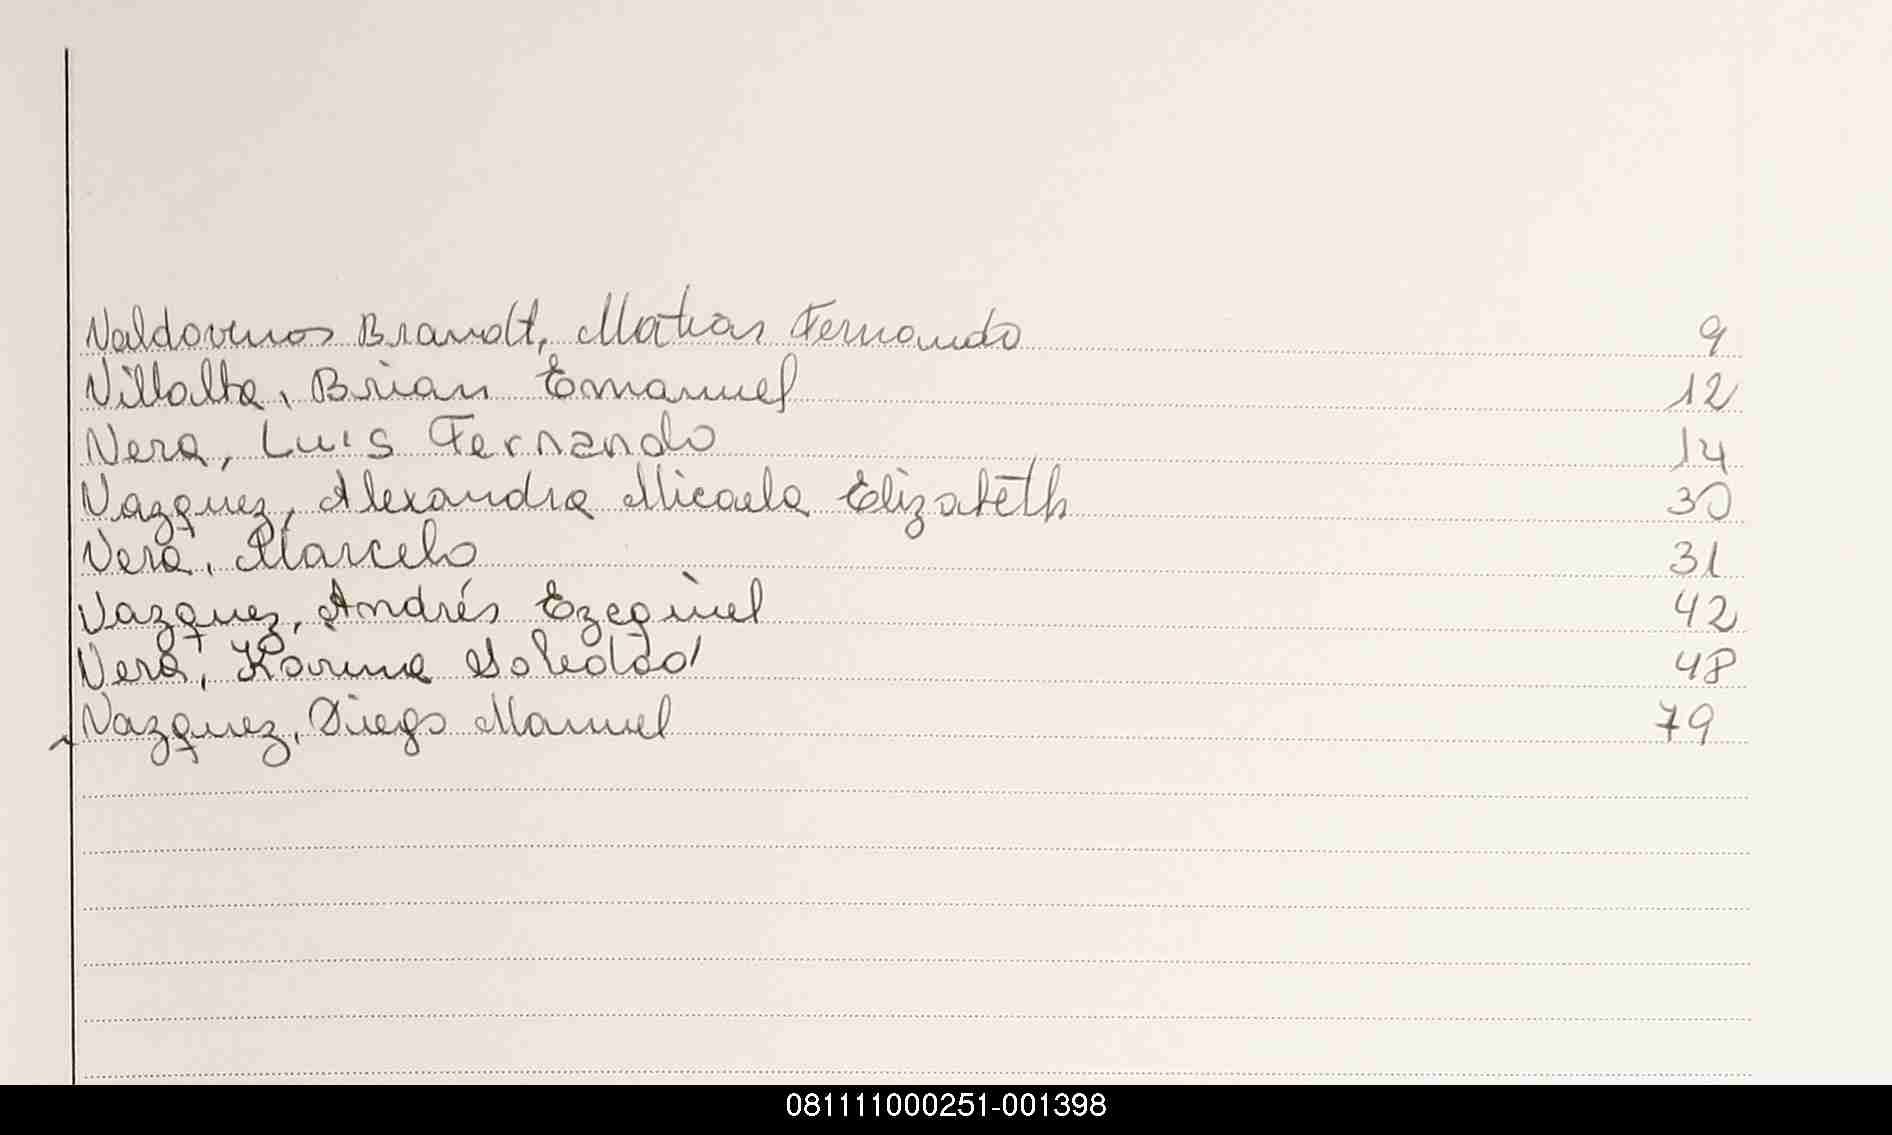 Valdovinos Brandt, Matias Fernando 9
Villalba, Brian Emanuel 12
Vera, Luis Fernando 14
Vazquez, Alexandra Micaela Elizabeth 30
Vera, Marcelo 31
Vazquez, Andrés Ezequiel 42
Vera, Karina Soledad 48
Vazquez, Diego Manuel 79
081111000251-001398